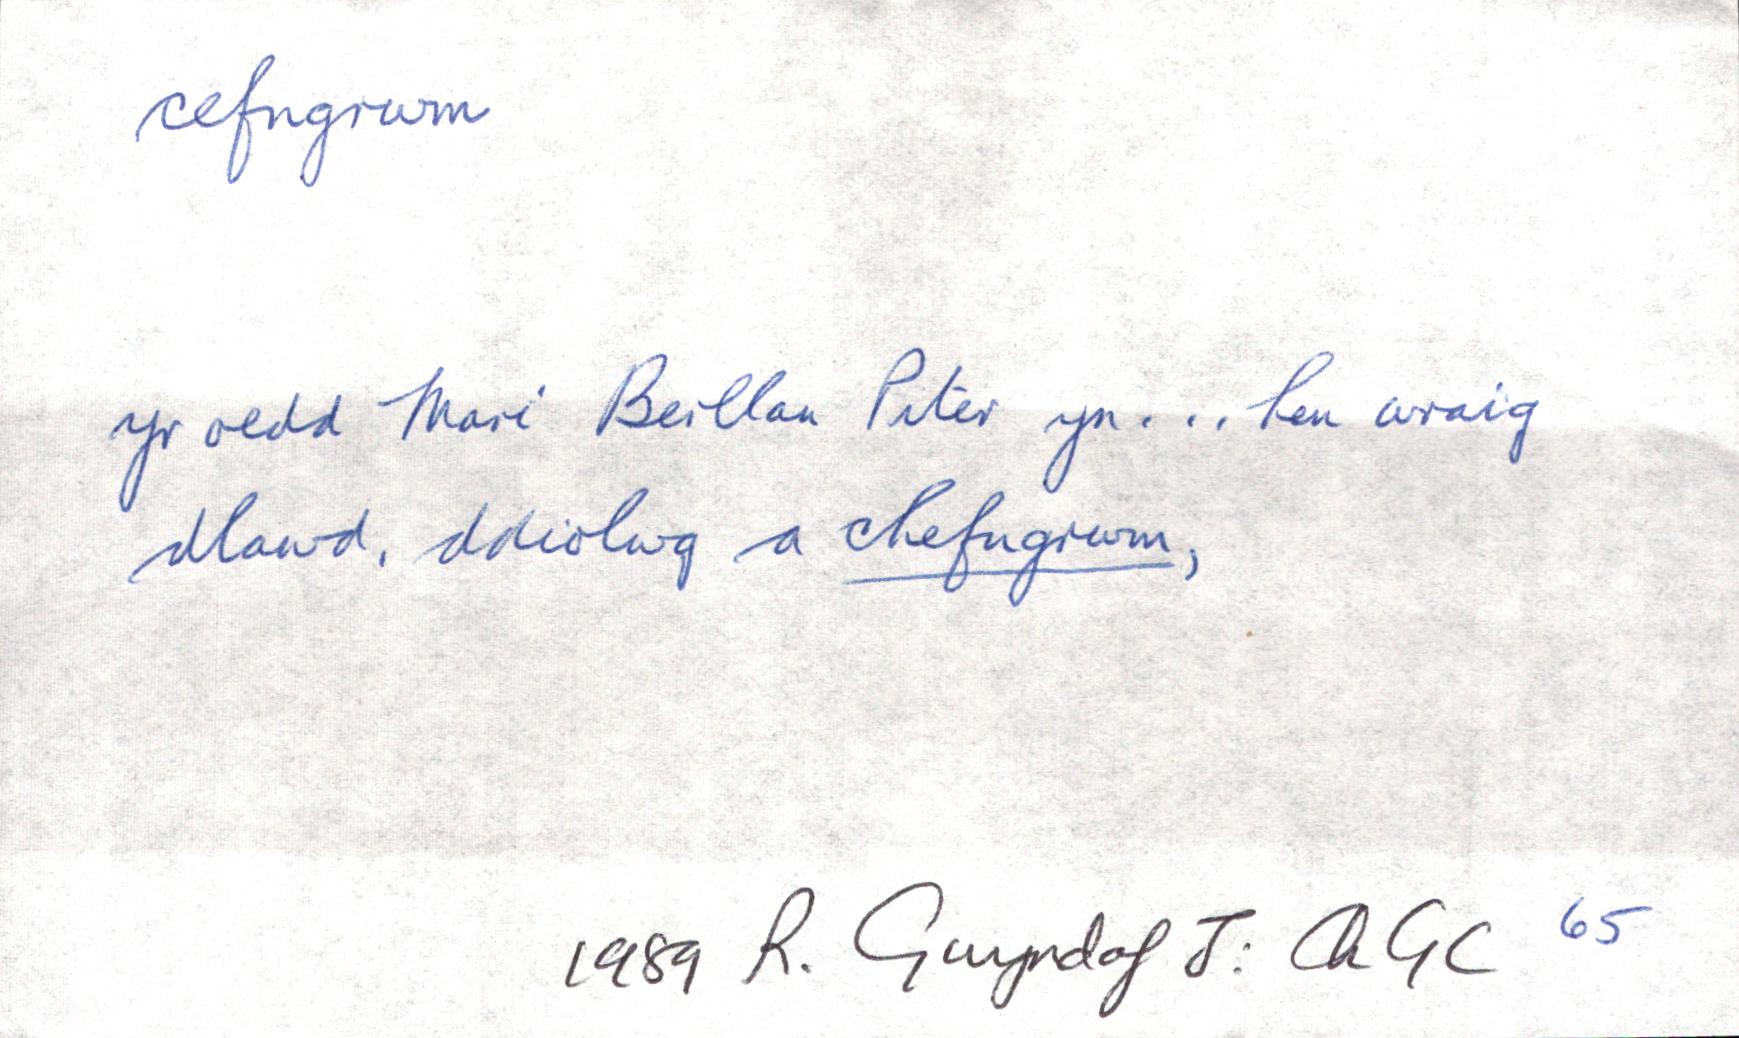 cefngrwm
yr oedd Mari Berllan Piter yn... hen wraig
dlawd, ddiolwg a chefngrwm,
1989 R. Gwyndaf J: ChGC 65